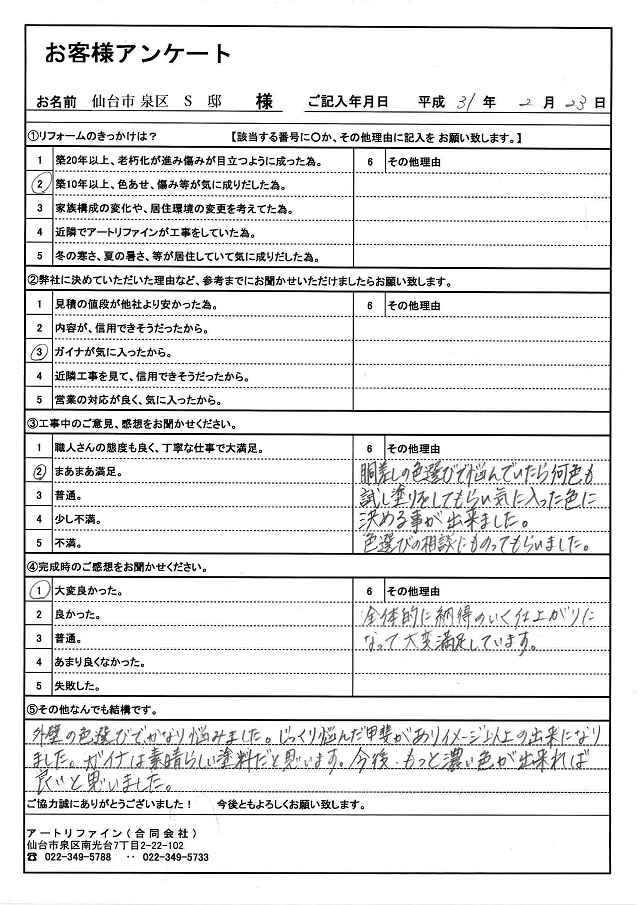 お客様アンケート
お名前 仙台市 泉区 S 邸 様 ご記入年月日 平成 31 年 2 月 23 日
①リフォームのきっかけは? 【該当する番号に○か、その他理由に記入を お願い致します。】
1 築20年以上、老朽化が進み傷みが目立つように成った為。 6 その他理由
2 築10年以上、色あせ、傷み等が気に成りだした為。
3 家族構成の変化や、居住環境の変更を考えてた為。
4 近隣でアートリファインが工事をしていた為。
5 冬の寒さ、夏の暑さ、等が居住していて気に成りだした為。
②弊社に決めていただいた理由など、参考までにお聞かせいただけましたらお願い致します。
1 見積の値段が他社より安かった為。 6 その他理由
2 内容が、信用できそうだったから。
3 ガイナが気に入ったから。
4 近隣工事を見て、信用できそうだったから。
5 営業の対応が良く、気に入ったから。
③工事中のご意見、感想をお聞かせください。
1 職人さんの態度も良く、丁寧な仕事で大満足。 6 その他理由
2 まあまあ満足。 胴差しの色選びで悩んでいたら何色も
3 普通。 試し塗りをしてもらい気に入った色に
4 少し不満。 決める事が出来ました。
5 不満。 色選びの相談にものってもらいました。
④完成時のご感想をお聞かせください。
1 大変良かった。 6 その他理由
2 良かった。 全体的に納得のいく仕上がりに
3 普通。 なって大変満足しています。
4 あまり良くなかった。
5 失敗した。
⑤その他なんでも結構です。
外壁の色選びでかなり悩みました。じっくり悩んだ甲斐がありイメージ以上の出来になり
ました。ガイナは素晴らしい塗料だと思います。今後、もっと濃い色が出来れば
良いと思いました。
ご協力誠にありがとうございました! 今後ともよろしくお願い致します。
アートリファイン(合同会社)
仙台市泉区南光台7丁目2-22-102
☎ 022-349-5788 ・・ 022-349-5733